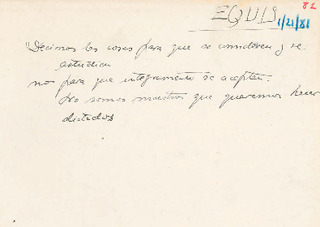 82
EQUIS
1/21/81
"Decimos las cosas para que se consideren y se
estudien
no para que integramente se acepten.
No somos maestros que queremos hacer
dictados